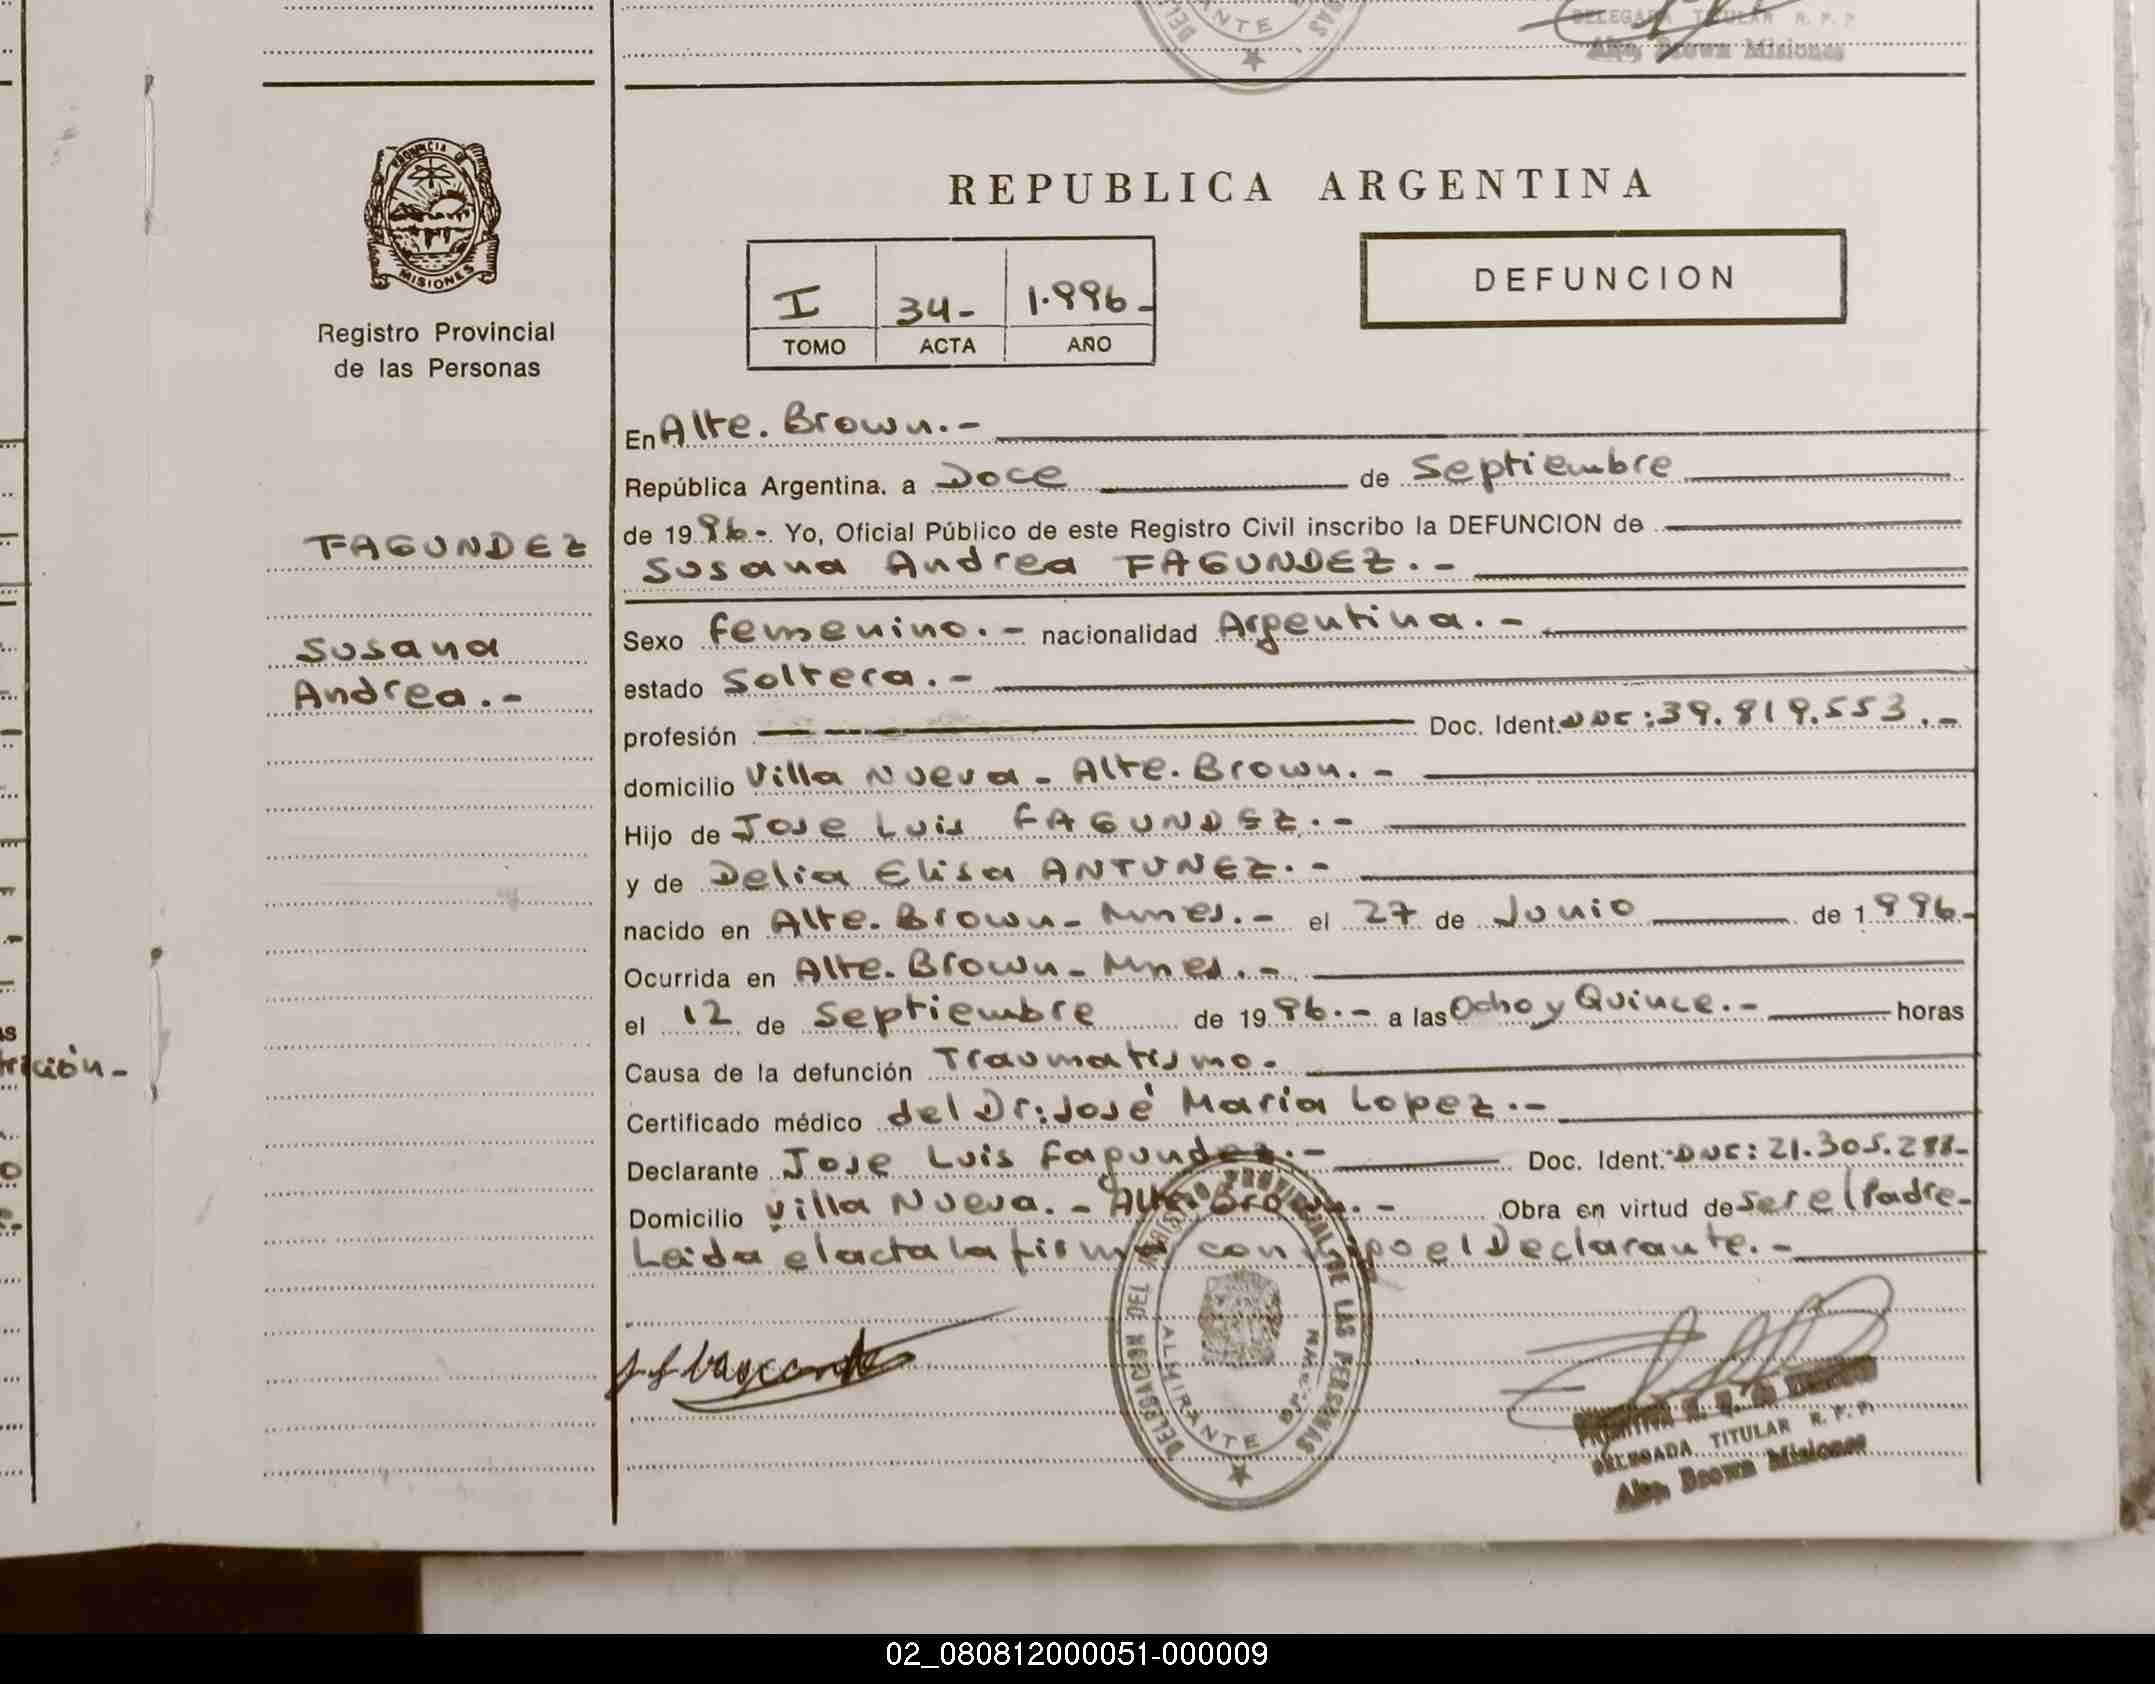 DELEGADA TITULAR R. P. P.
Alte. Brown Misiones
PROVINCIA DE
MISIONES
Registro Provincial
de las Personas
REPUBLICA ARGENTINA
I 34- 1.996-
TOMO ACTA AÑO
DEFUNCION
FAGUNDEZ
Susana
Andrea.-
En Alte. Brown.-
República Argentina, a Doce de Septiembre
de 1996- Yo, Oficial Público de este Registro Civil inscribo la DEFUNCION de
Susana Andrea FAGUNDEZ.-
Sexo femenino.- nacionalidad Argentina.-
estado Soltera.-
profesión Doc. Ident. DNI: 39.819.553.-
domicilio Villa Nueva - Alte. Brown.-
Hijo de Jose Luis FAGUNDEZ.-
y de Delia Elisa ANTUNEZ.-
nacido en Alte. Brown - Mnes.- el 27 de Junio de 1996-
Ocurrida en Alte. Brown - Mnes.-
el 12 de Septiembre de 1996.- a las Ocho y Quince.- horas
Causa de la defunción Traumatismo.
Certificado médico del Dr: José Maria Lopez.-
Declarante Jose Luis Fagundez.- Doc. Ident. DNI: 21.305.288-
Domicilio Villa Nueva.- Alte. Brown.- Obra en virtud de ser el Padre-
Leida el acta la firma conmigo el Declarante.-
trición-
REGISTRO PROVINCIAL DE LAS PERSONAS
DELEGACION DEL
ALMIRANTE BROWN
DELEGADA TITULAR R. P. P.
Alte. Brown Misiones
02_080812000051-000009